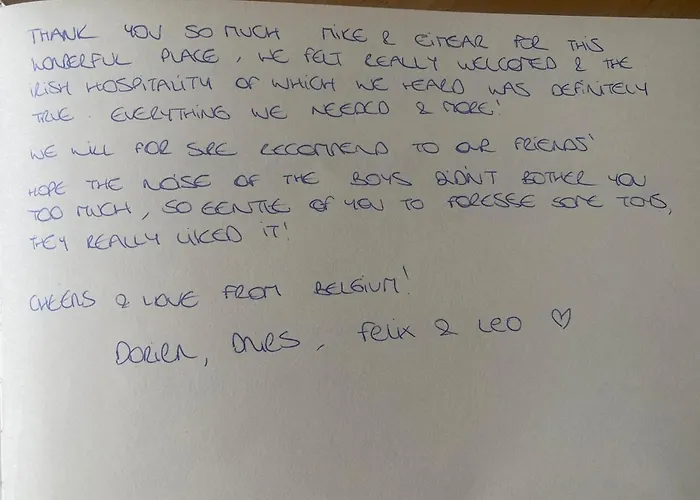 THANK YOU SO MUCH MIKE & EIMEAR FOR THIS
WONDERFUL PLACE, WE FELT REALLY WELCOMED & THE
IRISH HOSPITALITY OF WHICH WE HEARD WAS DEFINITELY
TRUE. EVERYTHING WE NEEDED & MORE!
WE WILL FOR SURE RECOMMEND TO OUR FRIENDS!
HOPE THE NOISE OF THE BOYS DIDN'T BOTHER YOU
TOO MUCH, SO GENTLE OF YOU TO FORESEE SOME TOYS,
THEY REALLY LIKED IT!
CHEERS & LOVE FROM BELGIUM!
DORIEN, DRIES, FELIX & LEO ♡